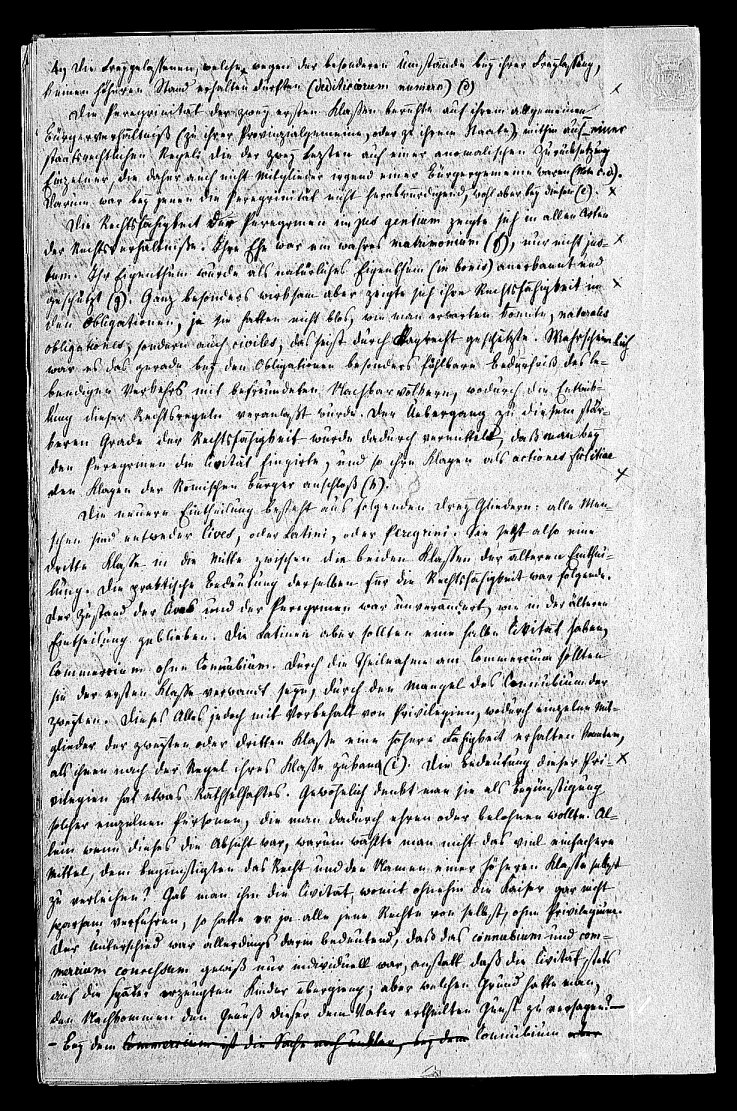 4) Die Freygelassenen, welche wegen der besonderen Umstände bey ihrer Freylassung,
keinen höheren Stand erhalten durften (dediticiorum numero) (d)
Die Peregrinität der zwey ersten Klassen beruhte auf ihrem allgemeinen
Bürgerverhältniß (zu ihrer Provinzialgemeine, oder zu ihrem Staate), mithin auf einer
staatsrechtlichen Regel; die der zwey lezten auf einer anomalischen Zurücksetzung
Einzelner, die daher auch nicht Mitglieder irgend einer Bürgergemeine waren (Note c. d.).
Darum war bey jenen die Peregrinität nicht herabwürdigend, wohl aber bey diesen (e).
Die Rechtsfähigkeit der Peregrinen im jus gentium zeigte sich in allen Arten
der Rechtsverhältnisse. Ihre Ehe war ein wahres matrimonium (f), nur nicht jus-
tum. Ihr Eigenthum wurde als natürliches Eigenthum (in bonis) anerkannt und
geschützt (g). Ganz besonders wirksam aber zeigte sich ihre Rechtsfähigkeit in
den Obligationen, ja sie hatten nicht blos, wie man erwarten könnte, naturales
obligationes, sondern auch civiles, das heißt durch Klagrecht geschützte. Wahrscheinlich
war es das gerade bey den Obligationen besonders fühlbare Bedürfniß des le-
bendigen Verkehrs mit befreundeten Nachbarvölkern, wodurch die Entwick-
lung dieser Rechtsregeln veranlaßt wurde. Der Uebergang zu diesem stär-
keren Grade der Rechtsfähigkeit wurde dadurch vermittelt, daß man bey
den Peregrinen die Civität fingirte, und so ihre Klagen als actiones fictitiae
den Klagen der Römischen Bürger anschloß (h).
Die neuere Eintheilung besteht aus folgenden drey Gliedern: alle Men-
schen sind entweder Cives, oder Latini, oder Peregrini. Sie setzt also eine
dritte Klasse in die Mitte zwischen die beiden Klassen der älteren Einthei-
lung. Die praktische Bedeutung derselben für die Rechtsfähigkeit war folgende.
Der Zustand der Cives und der Peregrinen war unverändert, wie in der älteren
Eintheilung geblieben. Die Latinen aber sollten eine halbe Civität haben,
Commercium ohne Connubium. Durch die Theilnahme am Commercium sollten
sie der ersten Klasse verwandt seyn, durch den Mangel des Connubium der
zweyten. Dieses Alles jedoch mit Vorbehalt von Privilegien, wodurch einzelne Mit-
glieder der zweyten oder dritten Klasse eine höhere Fähigkeit erhalten konnten,
als ihnen nach der Regel ihres Klasse zukam (i). Die Bedeutung dieser Pri-
vilegien hat etwas Räthselhaftes. Gewöhnlich denkt man sie als Begünstigung
solcher einzelnen Personen, die man dadurch ehren oder belohnen wollte. Al-
lein wenn dieses die Absicht war, warum wählte man nicht das viel einfachere
Mittel, dem Begünstigten das Recht und den Namen einer höheren Klasse selbst
zu verleihen? Gab man ihm die Civität, womit ohnehin die Kaiser gar nicht
sparsam verfuhren, so hatte er ja alle jene Rechte von selbst, ohne Privilegium.
Der Unterschied war allerdings darin bedeutend, daß das connubium und com-
mercium concessum gewiß nur individuell war, anstatt daß die Civität stets
auf die später erzeugten Kinder übergieng; aber welchen Grund hatte man,
den Nachkommen den Genuß dieser dem Vater ertheilten Gunst zu versagen? –
– Bey dem Commercium ist die Sache noch dunkler, bey dem Connubium aber